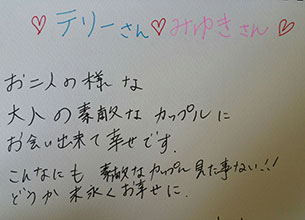 ♡テリーさん♡みゆきさん♡
お二人の様な
大人の素敵なカップルに
お会い出来て幸せです.
こんなにも 素敵なカップル見た事ない!!
どうか末永くお幸せに.